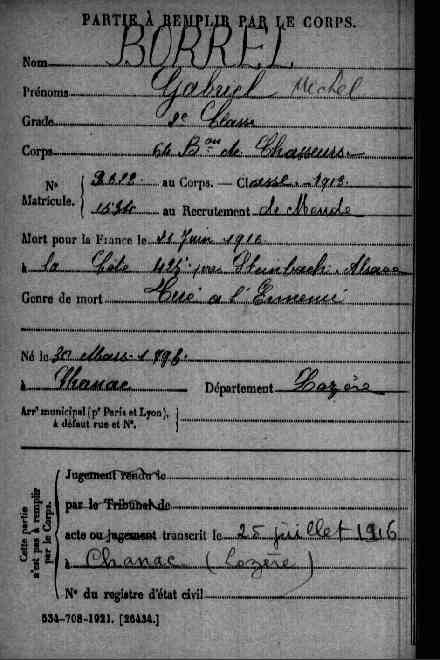 PARTIE À REMPLIR PAR LE CORPS.
Nom BORREL
Prénoms Gabriel Michel
Grade 2e Classe
Corps 64 Bon de Chasseurs
No Matricule. au Corps. — Classe 1913
1534 au Recrutement de Mende
Mort pour la France le Juin 1916
à la Côte 425 près Steinbach Alsace
Genre de mort Tué à l'Ennemi
Né le 30 Mars 1893
à Chanac Département Lozère
Arrt municipal (pr Paris et Lyon), à défaut rue et No.
Cette partie n'est pas à remplir par le Corps.
Jugement rendu le
par le Tribunal de
acte ou jugement transcrit le 25 juillet 1916
à Chanac (Lozère)
No du registre d'état civil
534-708-1921. [26434.]